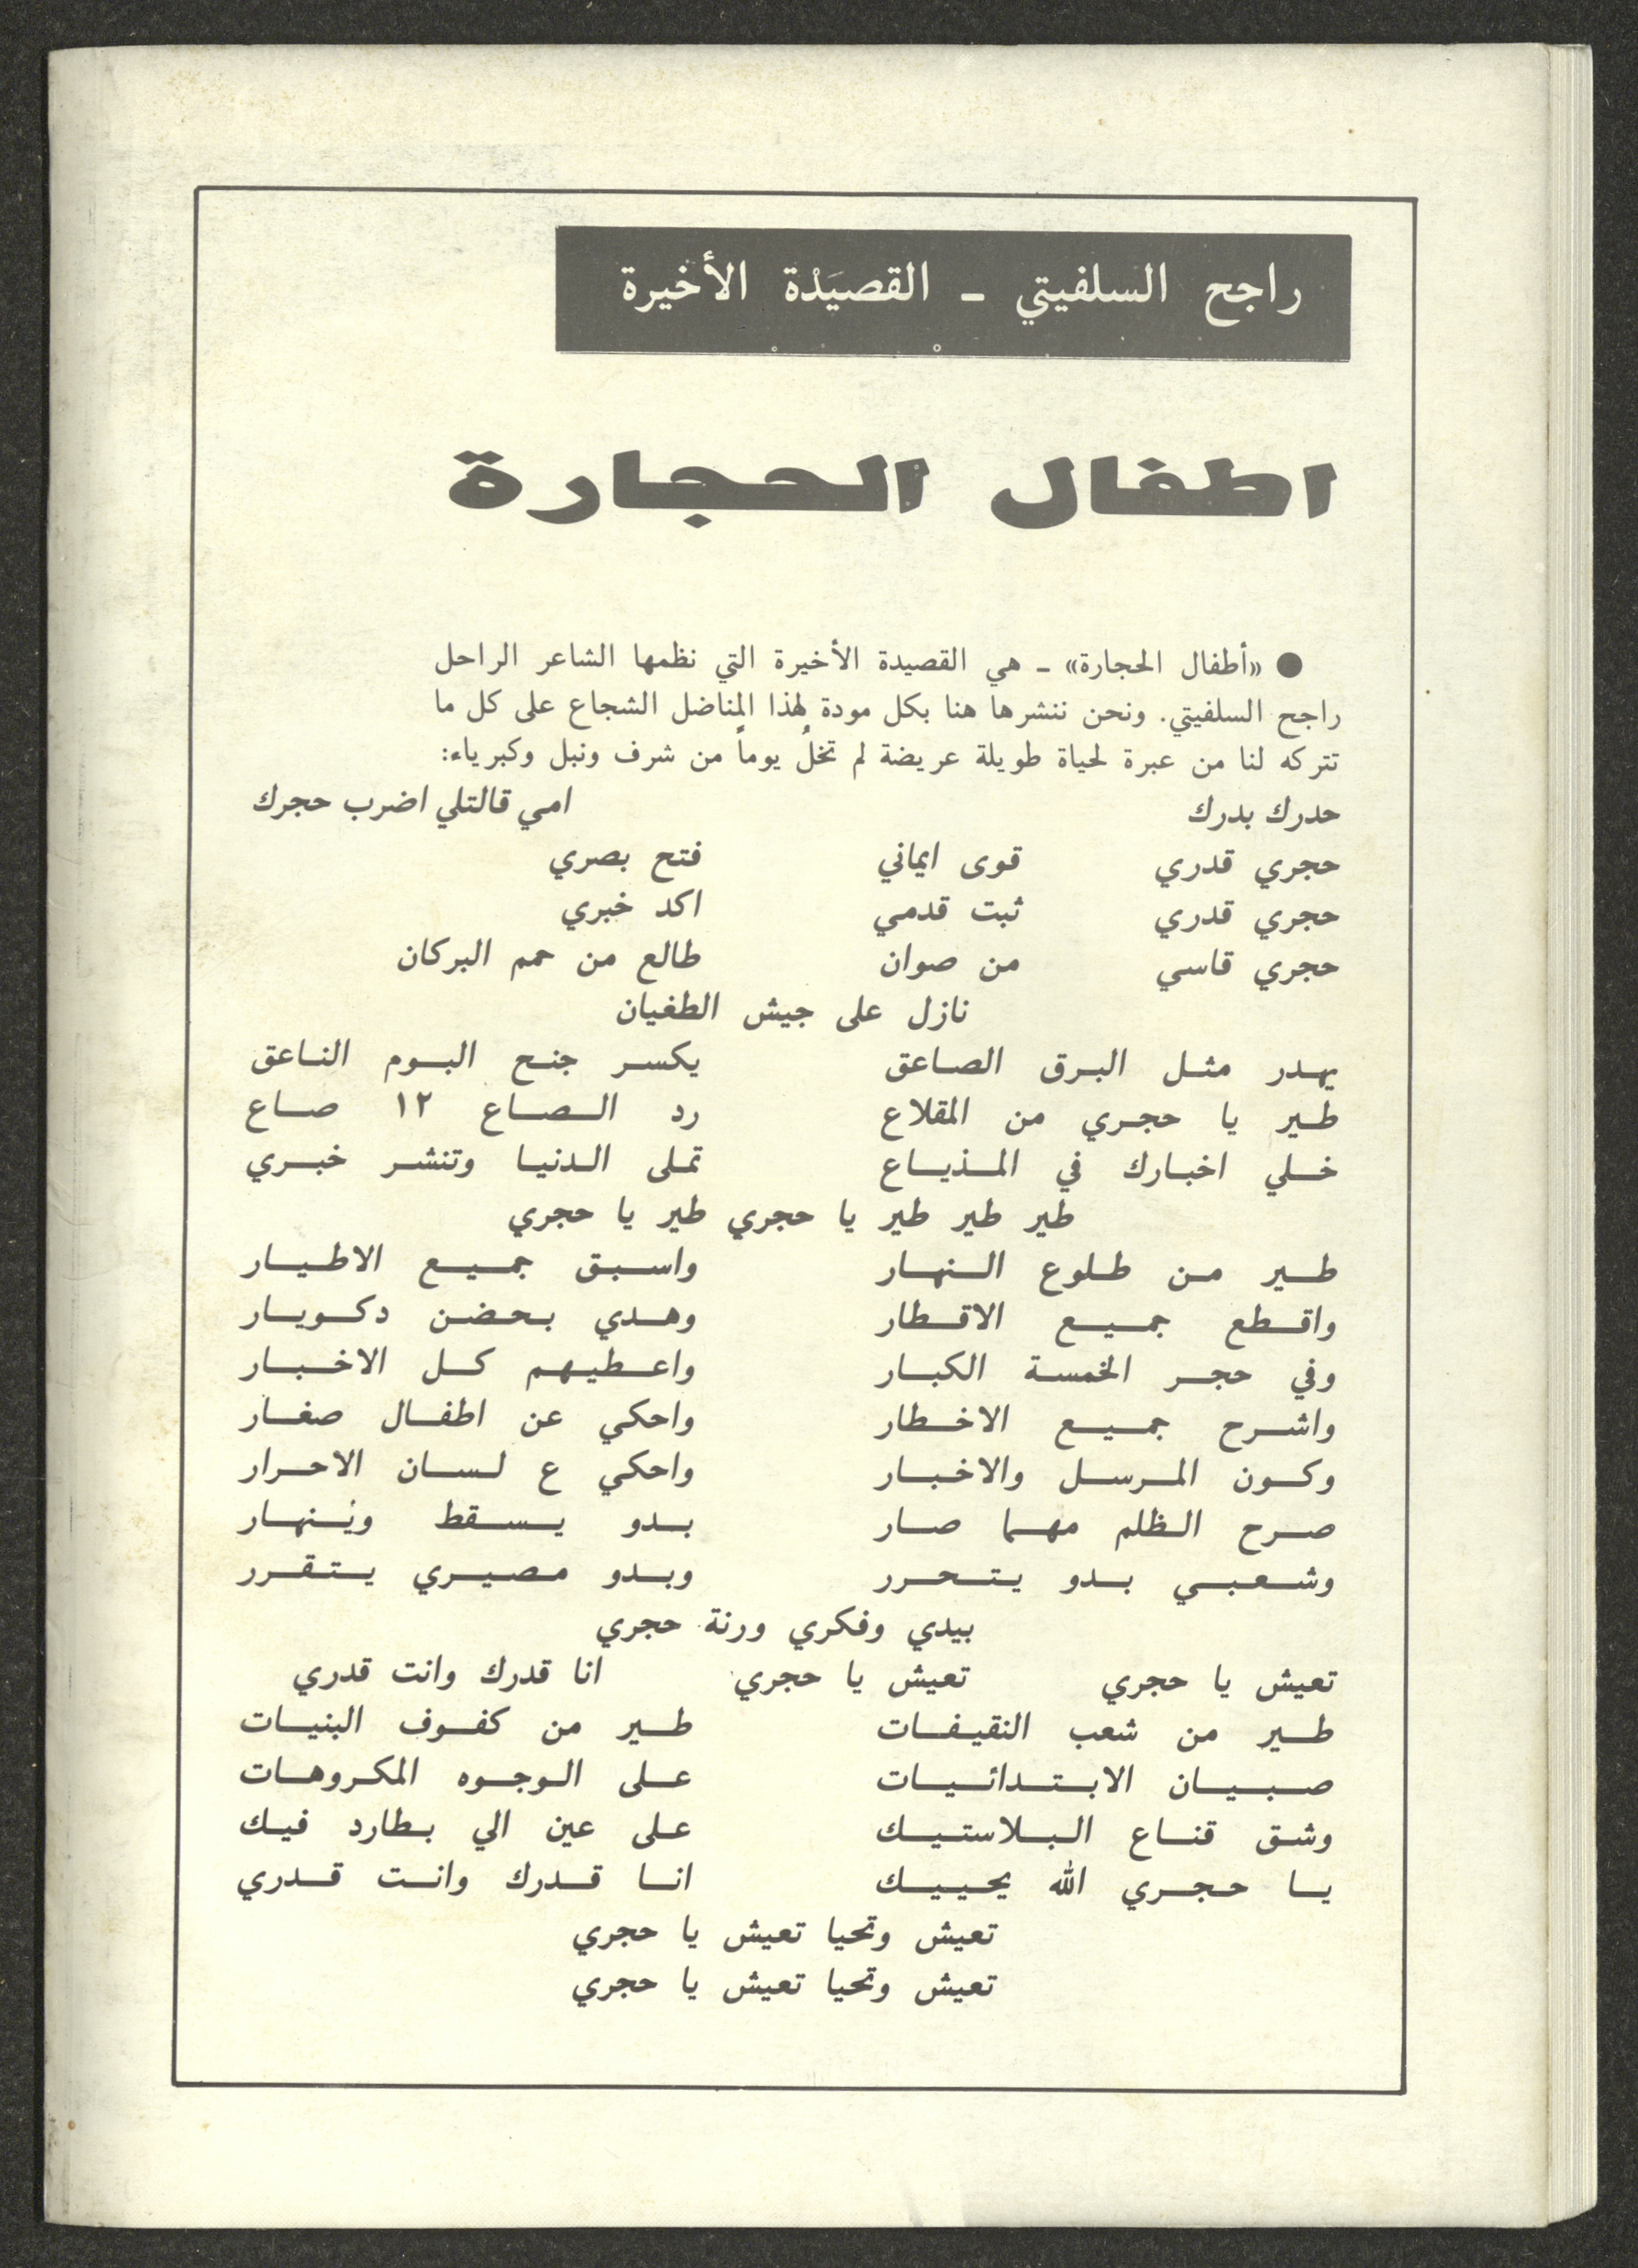 راجح السلفيتي ـ القصيَدْة الأخيرة
اطفال الحجارة
● «أطفال الحجارة» ـ هي القصيدة الأخيرة التي نظمها الشاعر الراحل
راجح السلفيتي. ونحن ننشرها هنا بكل مودة لهذا المناضل الشجاع على كل ما
تتركه لنا من عبرة لحياة طويلة عريضة لم تخلُ يوماً من شرف ونبل وكبرياء:
حدرك بدرك امي قالتلي اضرب حجرك
حجري قدري قوى ايماني فتح بصري
حجري قدري ثبت قدمي اكد خبري
حجري قاسي من صوان طالع من حمم البركان
نازل على جيش الطغيان
يهدر مثل البرق الصاعق يكسر جنح البوم الناعق
طير يا حجري من المقلاع رد الصاع ١٢ صاع
خلي اخبارك في المذياع تملى الدنيا وتنشر خبري
طير طير طير يا حجري طير يا حجري
طير من طلوع النهار واسبق جميع الاطيار
واقطع جميع الاقطار وهدي بحضن دكويار
وفي حجر الخمسة الكبار واعطيهم كل الاخبار
واشرح جميع الاخطار واحكي عن اطفال صغار
وكون المرسل والاخبار واحكي ع لسان الاحرار
صرح الظلم مهما صار بدو يسقط وينهار
وشعبي بدو يتحرر وبدو مصيري يتقرر
بيدي وفكري ورنة حجري
تعيش يا حجري تعيش يا حجري انا قدرك وانت قدري
طير من شعب النقيفات طير من كفوف البنيات
صبيان الابتدائيات على الوجوه المكروهات
وشق قناع البلاستيك على عين الي بطارد فيك
يا حجري الله يحييك انا قدرك وانت قدري
تعيش وتحيا تعيش يا حجري
تعيش وتحيا تعيش يا حجري